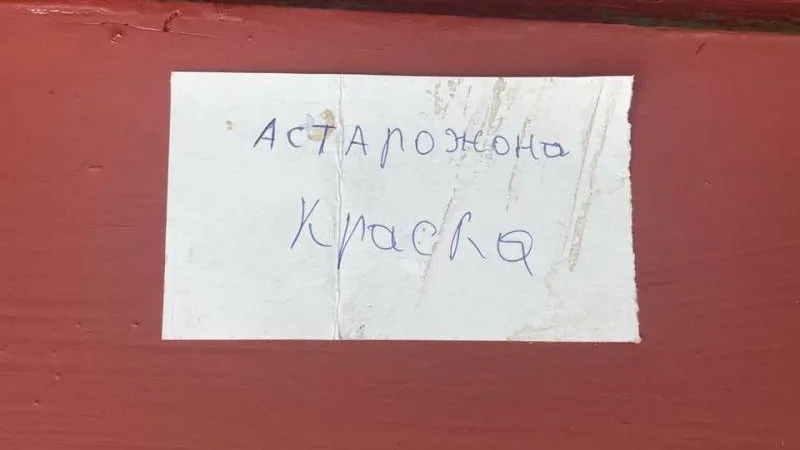 Астарожона
Краска